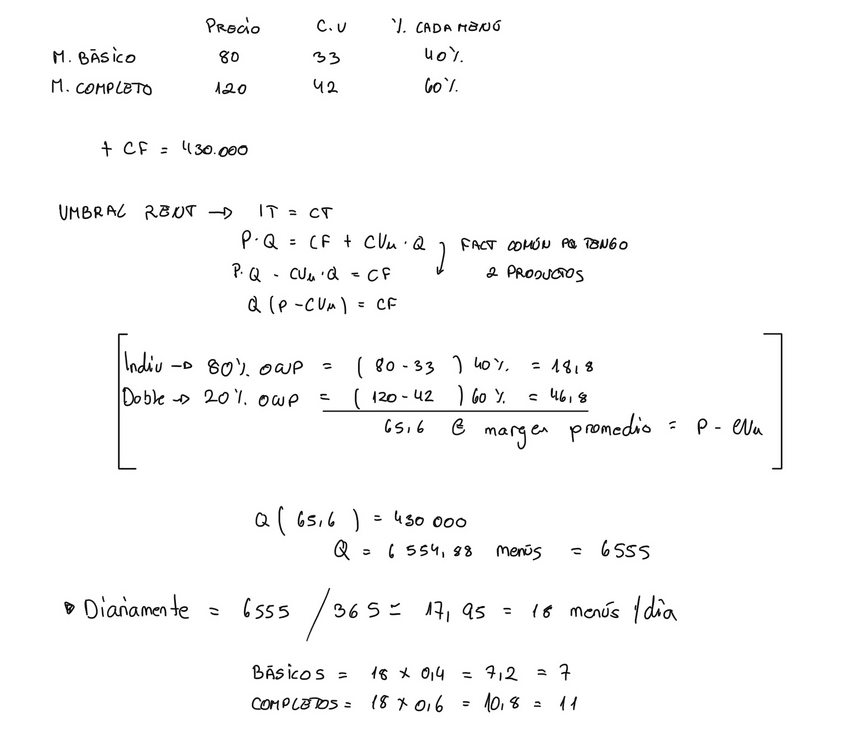 PRECIO C.U % CADA MENÚ
M. BÁSICO 80 33 40%
M. COMPLETO 120 42 60%
+ CF = 430.000
UMBRAL RENT → IT = CT
P·Q = CF + CVu·Q FACT COMÚN PQ TENGO
P·Q - CVu·Q = CF 2 PRODUCTOS
Q (P - CVu) = CF
Indiv → 80% OWP = ( 80 - 33 ) 40% = 18,8
Doble → 20% OWP = ( 120 - 42 ) 60% = 46,8
65,6 € margen promedio = P - CVu
Q ( 65,6 ) = 430 000
Q = 6 554,88 menús = 6555
Diariamente = 6555 / 365 = 17,95 = 18 menús /día
BÁSICOS = 18 x 0,4 = 7,2 = 7
COMPLETOS = 18 x 0,6 = 10,8 = 11